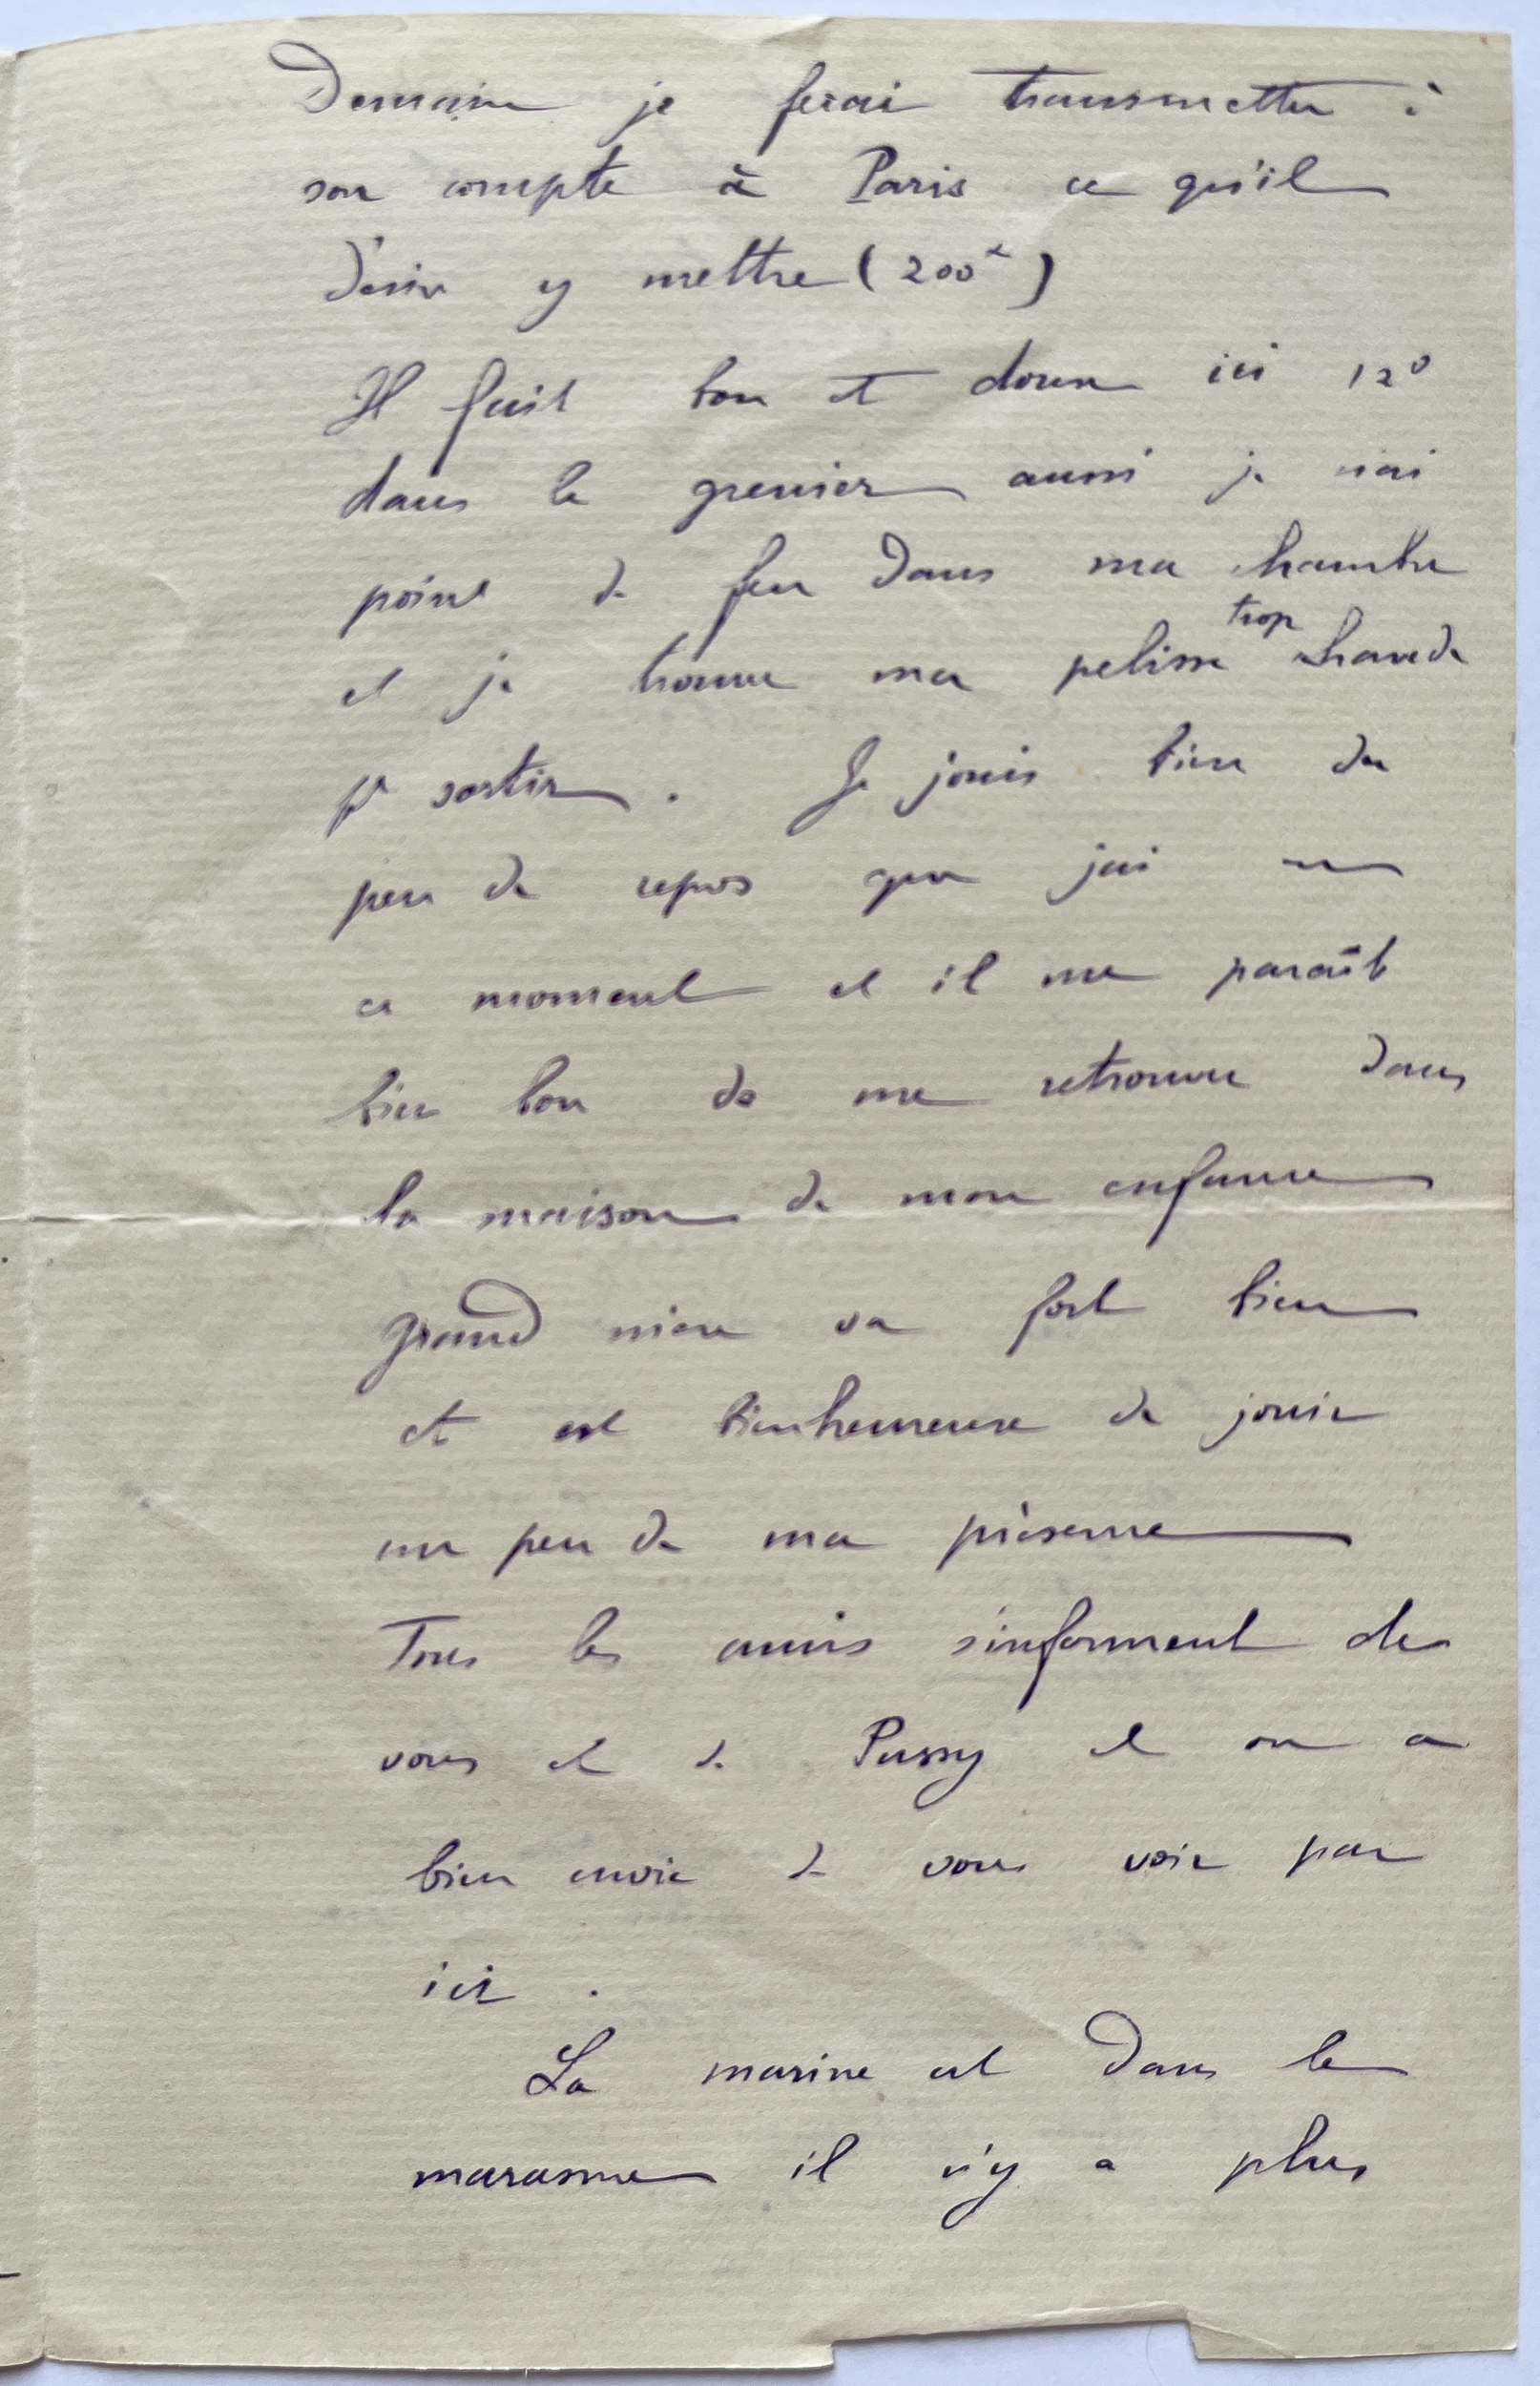 Demain je ferai transmettre à
son compte à Paris ce qu'il
désire y mettre (200 )
Il fait bon et doux ici 12°
dans le grenier aussi je n'ai
point de feu dans ma chambre
et je trouve ma pelisse trop chaude
pr sortir. Je jouis bien du
peu de repos que j'ai en
ce moment et il me paraît
bien bon de me retrouver dans
la maison de mon enfance
grand mère va fort bien
et est bienheureuse de jouir
un peu de ma présence
Tous les amis s'informent de
vous et de Pussy et on a
bien envie de vous voir par
ici.
La marine est dans le
marasme il n'y a plus